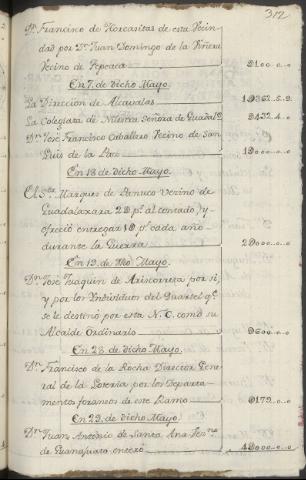 312
Dn. Francisco de Horcasitas de esta Vecin
dad por Dn. Juan Domingo de la
Vecino de Tepeaca 2100..0..0
En 7. de dicho Mayo.
La Direccion de Alcavalas 1,9362..5..9.
La Colegiata de Ntra. Señora de Guadalpe.
Dn. José Francisco Caballero Vecino de San
Luis de la Paz 1,9000..0..0
En 18. de dicho Mayo.
El Sor. Marques de Panuco Vecino de
Guadalaxara 29 ps. al contado, y
ofreció entregar 19 ps. cada año
durante la Guerra 29000..0..0
En 19. de dho. Mayo.
Dn. José Juaquin de Ariscorreta por si,
y por los Individuos del Quartel qe.
se le destinó por esta N. C. como su
Alcalde Ordinario 9600..0..0
En 28. de dicho Mayo.
Dn. Francisco de la Rocha Director Gene
ral de la Loteria por los Departa-
mentos foraneos de este Ramo 9179..0..0
En 29. de dicho Mayo.
Dn. Juan Antonio de Santa Ana
de Guanajuato enteró 49000..0..0